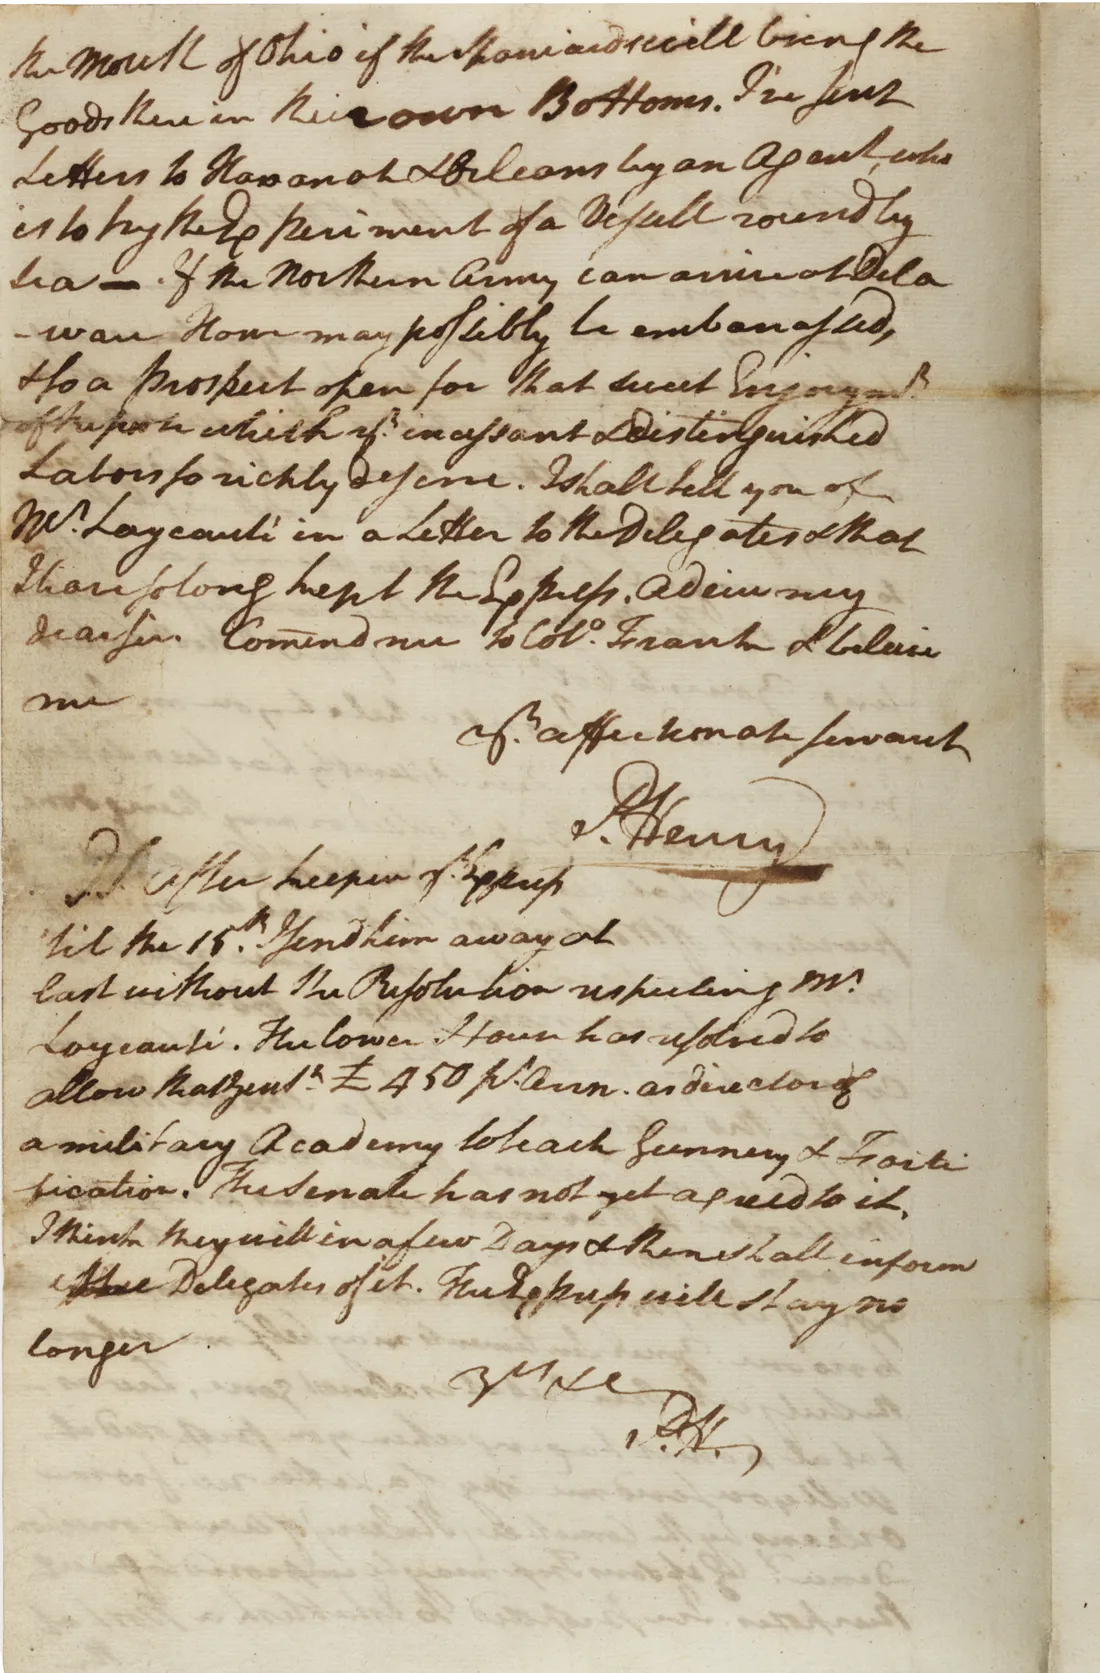 the Mouth of Ohio if the Spaniards will bring the
Goods there in their own Bottoms. I've sent
Letters to Havanah & Orleans by an Agent, who
is to try the Experiment of a Vessell round by
sea —. If the Northern Army can arrive at Dela
-ware Howe may possibly be embarassed,
& so a prospect open for that sweet Enjoymt.
of repose which yr. incessant & distinguished
Labors so richly deserve. I shall tell you of
Mr. Loyeauté in a Letter to the Delegates & that
I have so long kept the Express. Adieu my
dear sir. Comend me to Colo. Frank & beleive
me
yr. affectionate servant
P. Henry
PS after keeping yr. Express
'til the 15th. I send him away at
last without the Resolution respecting Mr.
Loyeauté. The lower House has resolved to
allow that Gent£ 450 pr. Ann. as director of
a military Academy to teach Gunnery & Forti
fication. The Senate has not yet agreed to it.
I think they will in a few Days & then shall inform
the Delegates of it. The Express will stay no
longer
Yrs &c
P. H.